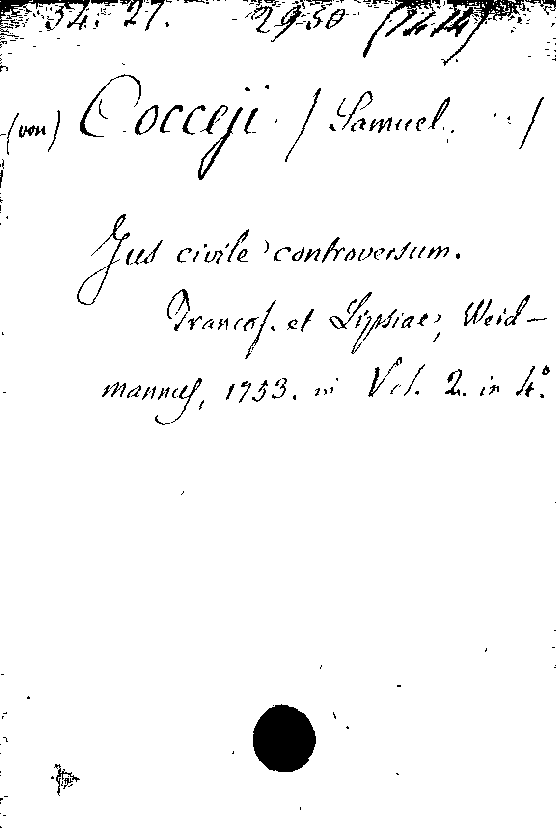 34. 21. 2930 (1414)
(von) Cocceji / Samuel. /
Jus civile controversum.
Francof. et Lipsiae, Weid-
mannus, 1753. in Vol. 2. in 4°.